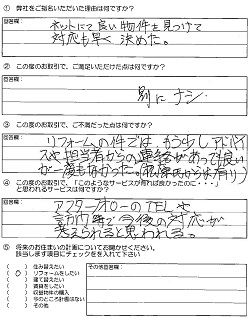 ① 弊社をご指名いただいた理由は何ですか?
回答欄:
ネットにて良い物件を見つけて
対応も早く決めた。
② この度のお取引で、ご満足いただけた点は何ですか?
回答欄:
別にナシ
③ この度のお取引で、ご不満だった点は何ですか?
回答欄:
リフォームの件では、もう少しアドバイ
スや担当者からの連絡があっても良い
が一度もなかった。
④ この度のお取引で、「このようなサービスが有れば良かったのに・・・」
と思われるサービスは何ですか?
回答欄:
アフターフォローのTELや
訪問等で今後の対応が
考えられると思われる。
⑤ 将来のお住まいの計画についてお聞かせください。
該当します項目にチェックを入れて下さい
( ) 住み替えたい
( ) リフォームをしたい
( ) 建て替えたい
( ) 賃貸をしたい
( ) 収益物件の購入
( ) 今のところ計画はない
( ) その他
その他回答欄: